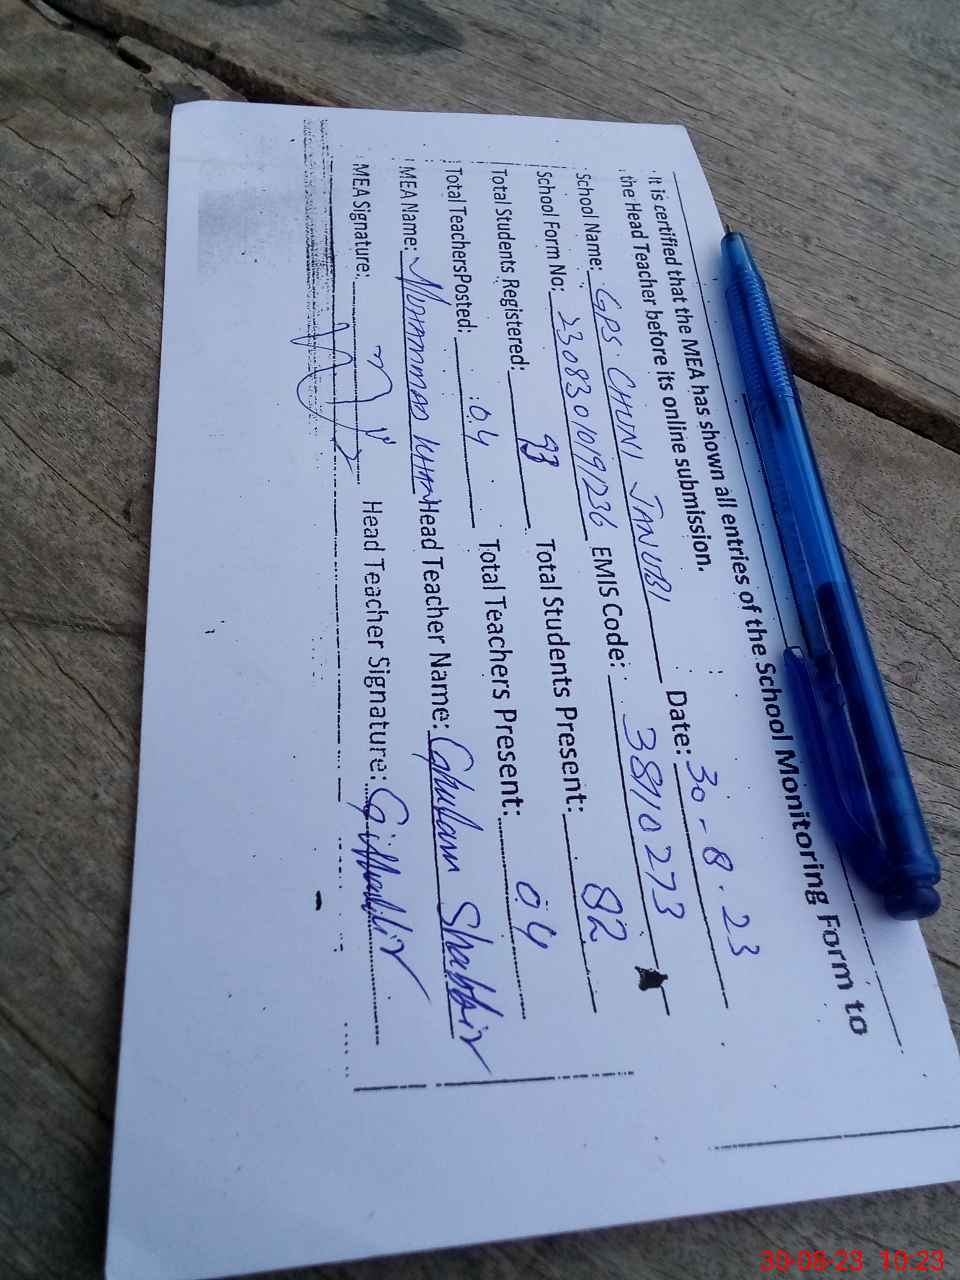 It is certified that the MEA has shown all entries of the School Monitoring Form to
the Head Teacher before its online submission.
School Name: GPS CHUNI JANUBI Date: 30-8-23
School Form No: 23083010191236 EMIS Code: 38910273
Total Students Registered: 93 Total Students Present: 82
Total TeachersPosted: 04 Total Teachers Present: 04
MEA Name: MUHAMMAD KHAN Head Teacher Name: Ghulam Shabbir
MEA Signature: Head Teacher Signature: GShabbir
30-08-23 10:23